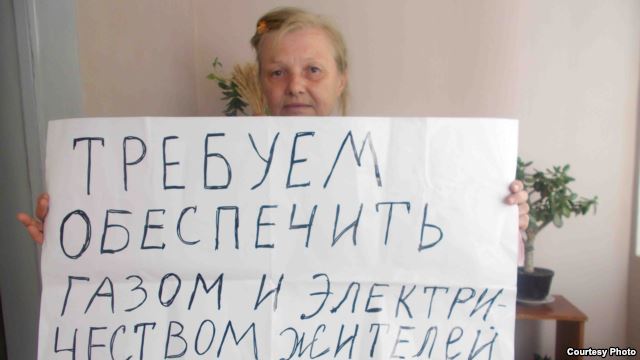 ТРЕБУЕМ
ОБЕСПЕЧИТЬ
ГАЗОМ И ЭЛЕКТРИ-
ЧЕСТВОМ ЖИТЕЛЕЙ
Courtesy Photo